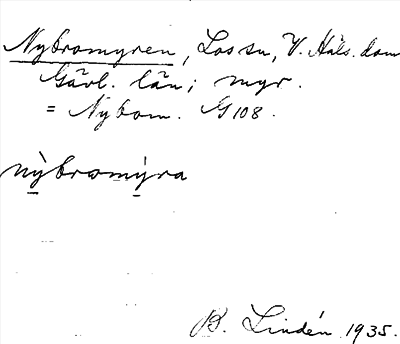 Nybromyren, Los sn, V. Häls. dom
Gävl. län; myr.
= Nybom. G108.
nỳbromýra
B. Lindén 1935.